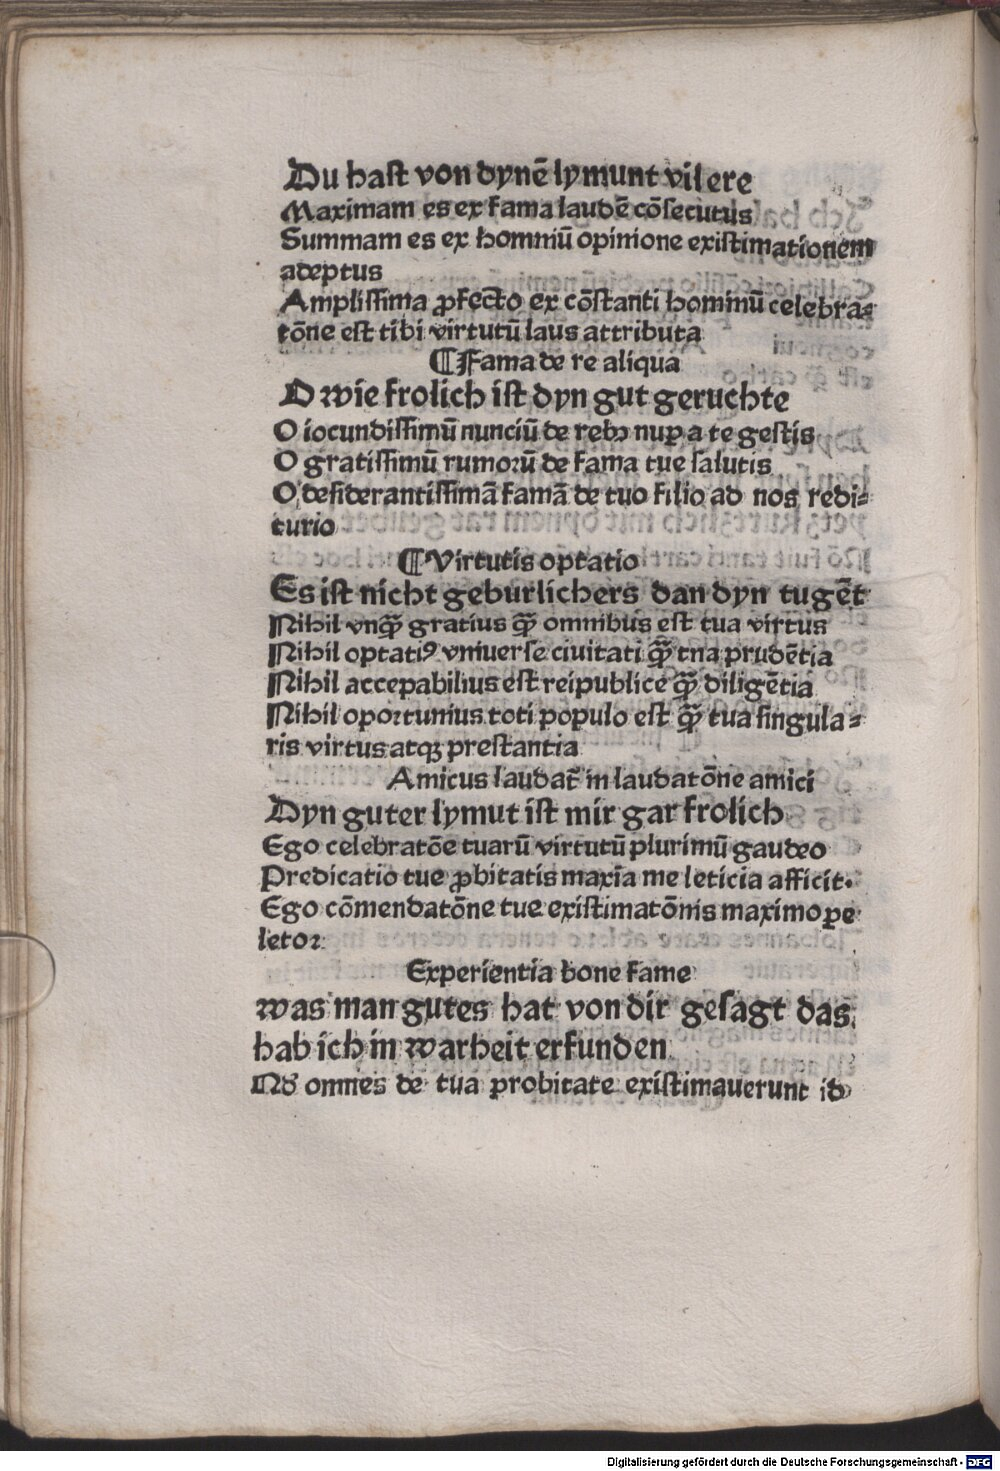 Du hast von dynē lymunt vil ere
Maximam es ex fama laudē cōsecutus
Summam es ex homniū opinione existimationem
adeptus
Amplissima ꝓfecto ex cōstanti hominū celebra⸗
tōne est tibi virtutū laus attributa
¶Fama de re aliqua
O wie frolich ist dyn gut geruchte
O iocundissimū nunciū de rebꝰ nuꝑ a te gestis
O gratissimū rumoꝛū de fama tue salutis
O desiderantissimā famā de tuo filio ad nos redi⸗
turio
¶Virtutis optatio
Es ist nicht geburlichers dan dyn tugēt
Nihil vnꝙ̄ gratius ꝙ̄ omnibus est tua virtus
Nihil optatiꝰ vniuerse ciuitati ꝙ̄ tna prudētia
Nihil accepabilius est reipublice ꝙ̄ diligētia
Nihil opoꝛtunius toti populo est ꝙ̄ tua singula⸗
ris virtus atqꝫ prestantia
Amicus laudat̄ in laudatōne amici
Dyn guter lymut ist mir gar frolich
Ego celebratōe tuarū virtutū plurimū gaudeo
Predicatio tue ꝓbitatis maxīa me leticia afficit.
Ego cōmendatōne tue existimatōnis maximoꝑe
letoꝛ
Experientia bone fame
was man gutes hat von dir gesagt das
hab ich in warheit erfunden
omnes de tua probitate existimauerunt id
Digitalisierung gefördert durch die Deutsche Forschungsgemeinschaft - DFG